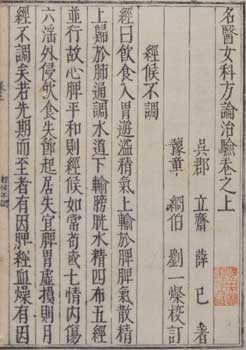 名醫女科方論治驗卷之上
吳郡 立齋 薛 已 著
豫章 綱伯 劉一燦校訂
經候不調
經曰飲食入胃遊溢精氣上輸於脾脾氣散精
上歸於肺通調水道下輸膀胱水精四布五經
並行故心脾平和則經候如常苟或七情內傷
六淫外侵飲食失節起居失宜脾胃虛損則月
經不調矣若先期而至者有因脾經血燥有因